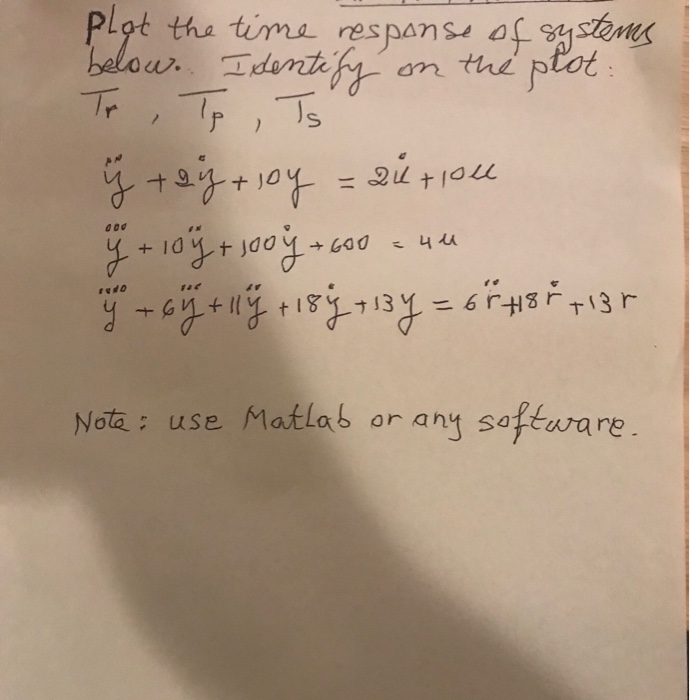 Plot the time response of systems
below. Identify on the plot:
Tr, Tp, Ts
ÿ + 2ẏ + 10y = 2u̇ + 10u
y⃛ + 10ÿ + 100ẏ + 600 = 4u
y⃜ + 6y⃛ + 11ÿ + 18ẏ + 13y = 6r̈ + 18ṙ + 13r
Note: use Matlab or any software.